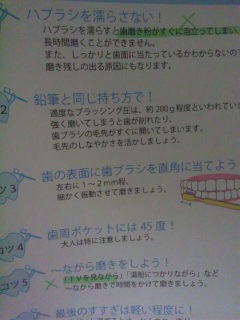 ハブラシを濡らさない!
ハブラシを濡らすと歯磨き粉がすぐに泡立ってしまい、
長時間磨くことができません。
また、しっかりと歯面に当たっているかわからないので
磨き残しの出る原因にもなります。
2
鉛筆と同じ持ち方で!
適度なブラッシング圧は、約200g程度といわれてい
強く磨いてしまうと歯が削れたり、
歯ブラシの毛先がすぐに開いてしまいます。
毛先のしなやかさを活かしましょう。
ツ3
歯の表面に歯ブラシを直角に当てよう
左右に1〜2mm程、
細かく振動させて磨きましょう。
コツ4
歯周ポケットには45度!
大人は特に注意しましょう。
コツ5
〜ながら磨きをしよう!
「TVを見ながら」「湯船につかりながら」など
〜ながら磨きで時間をかけて磨きましょう。
最後のすすぎは軽い程度に!